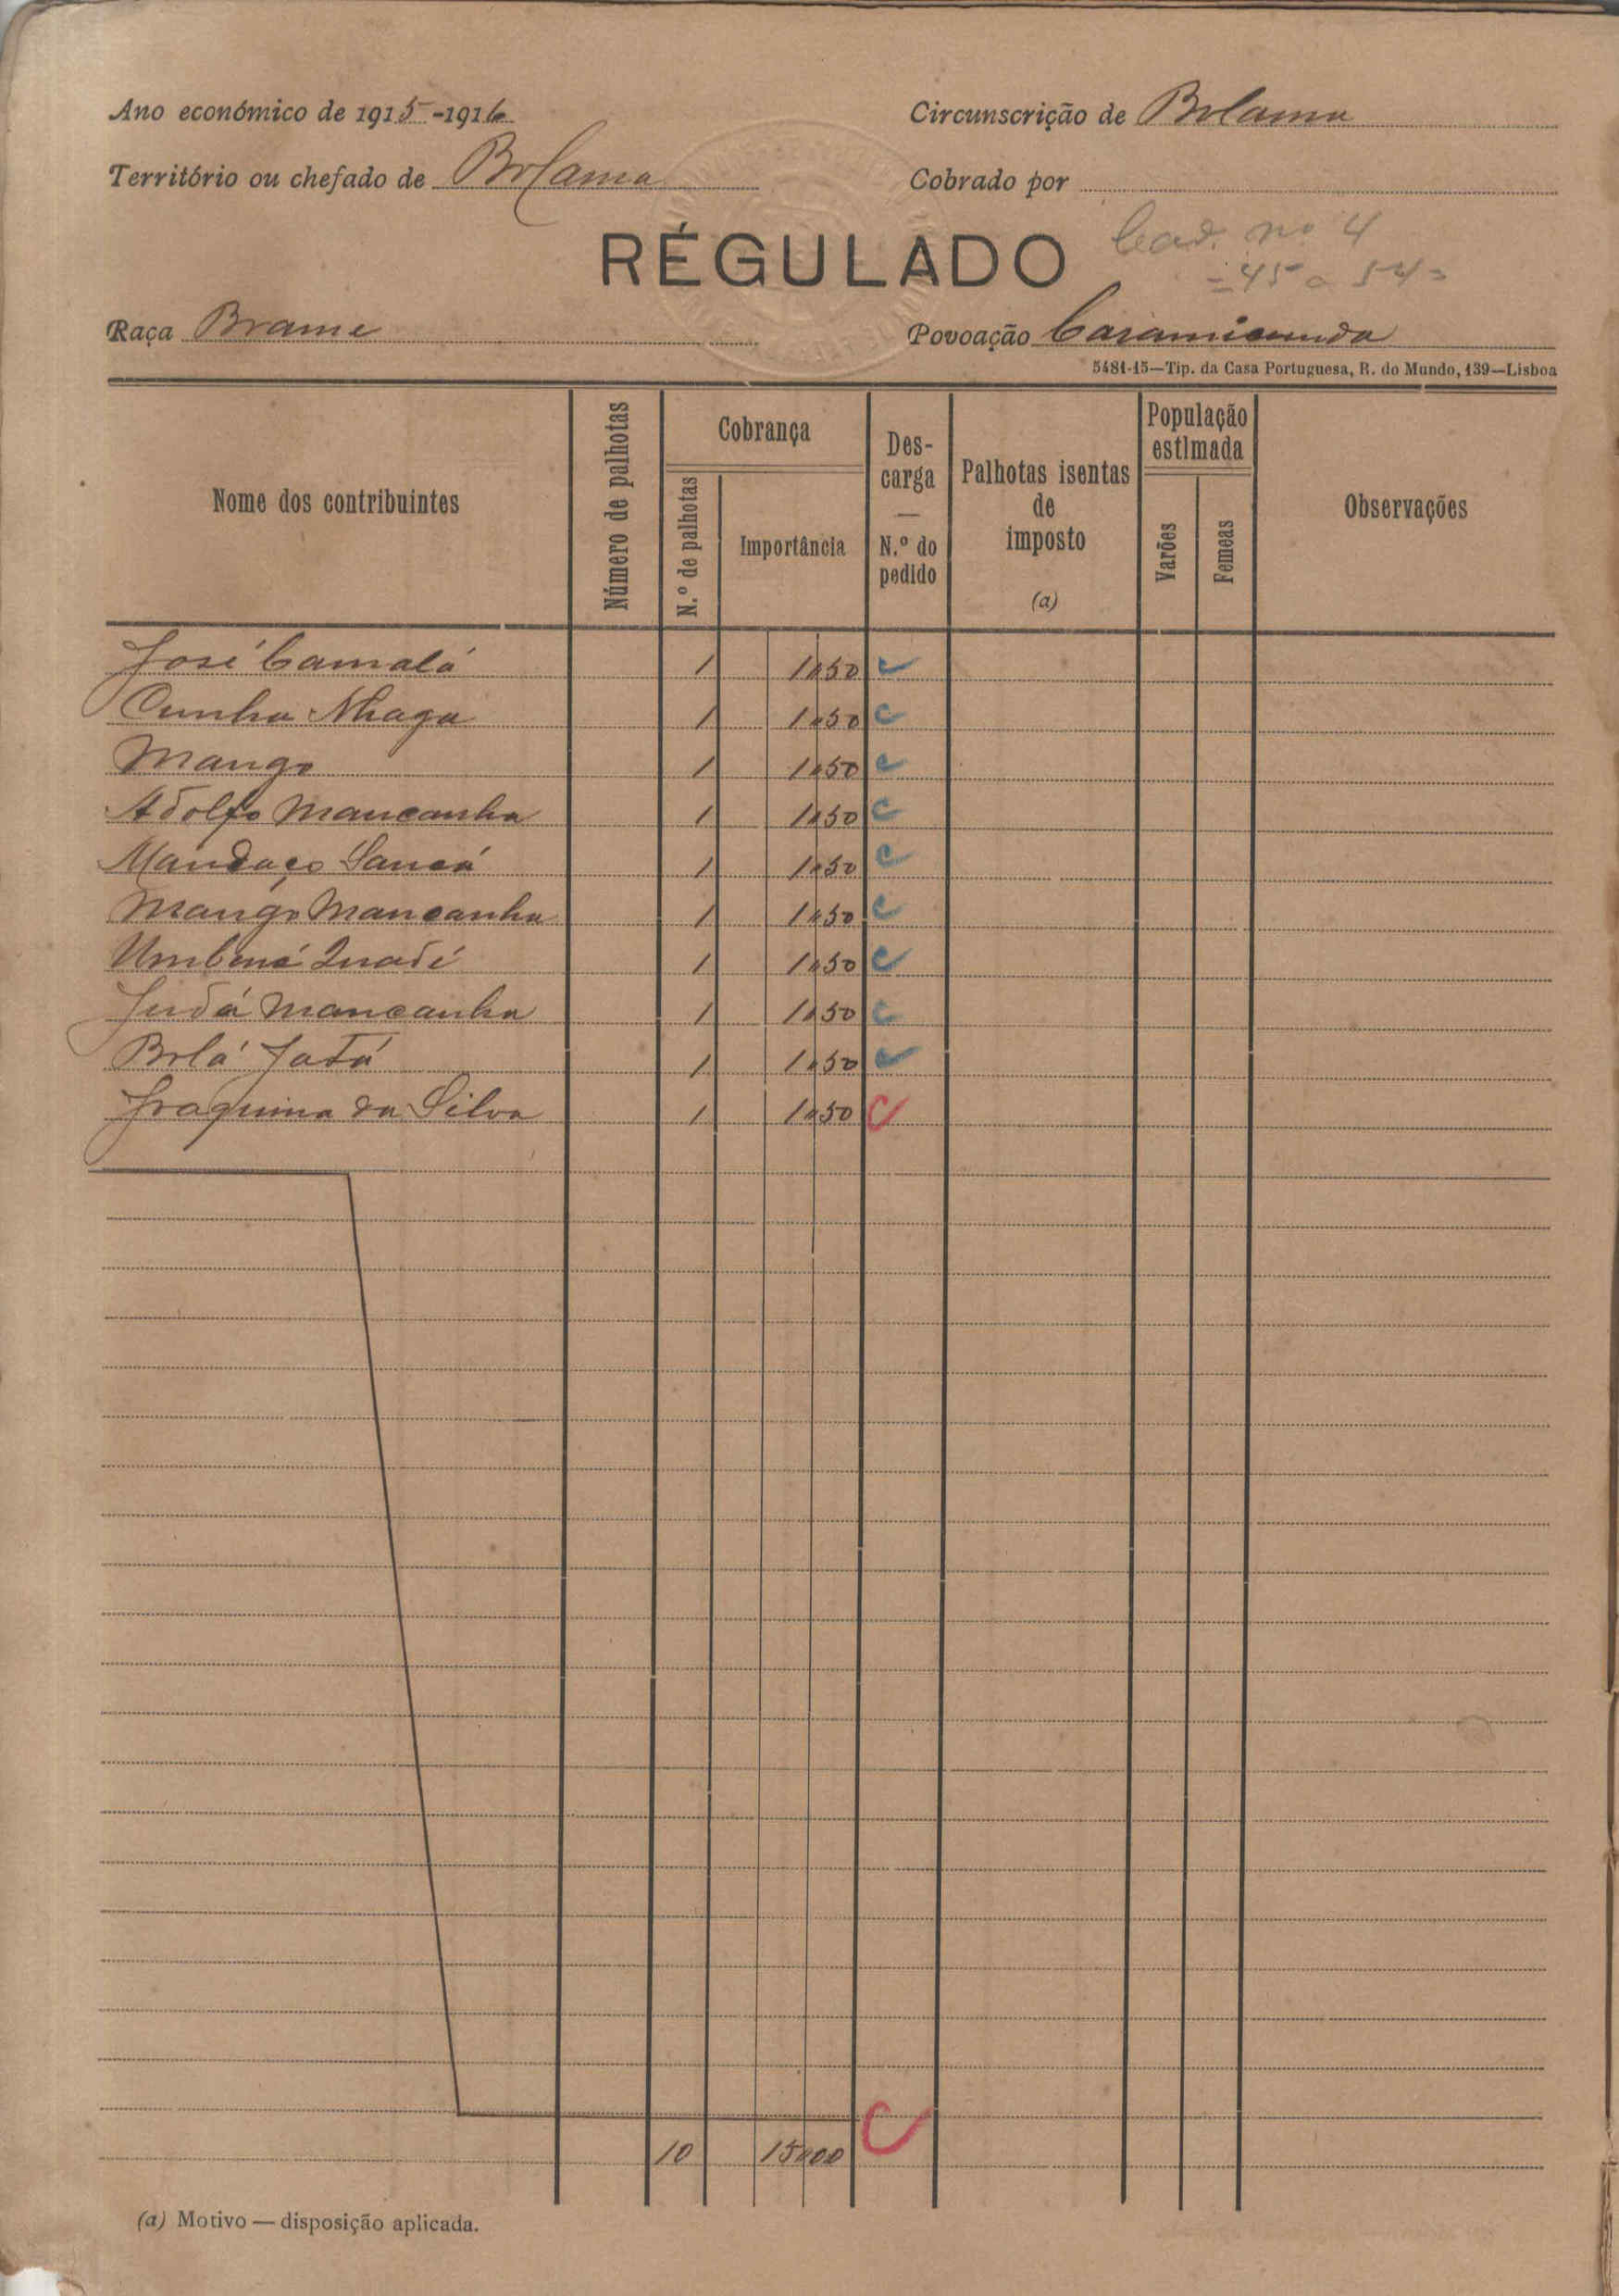 Ano económico de 1915-1916
Circunscrição de Bolama
Território ou chefado de Bolama
Cobrado por
RÉGULADO
Cad. nº 4
=45 a 54=
Raça Brame
Povoação
5481-15—Tip. da Casa Portuguesa, R. do Mundo, 139—Lisboa
Nome dos contribuintes
Número de palhotas
Cobrança
N.º de palhotas
Importância
Descarga
—
N.º do pedido
Palhotas isentas de imposto
(a)
População estimada
Varões
Femeas
Observações
José Camalá 1 1$50 c
Cunha Nhaga 1 1$50 c
Mango 1 1$50 c
Adolfo Mancanha 1 1$50 c
Mandaço Sancá 1 1$50 c
Mango Mancanha 1 1$50 c
1 1$50 c
Judá Mancanha 1 1$50 c
Bolá 1 1$50 c
Joaquina da Silva 1 1$50 C
10 15$00 C
(a) Motivo — disposição aplicada.